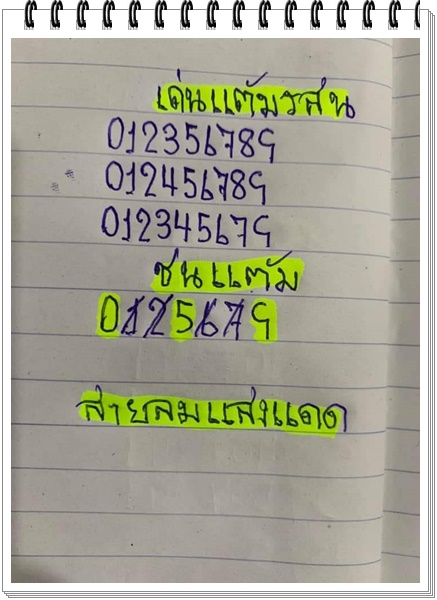 เด่นแต้มรสน
012356789
012456789
012345679
ชนแต้ม
0125679
สายลมแสงแดด